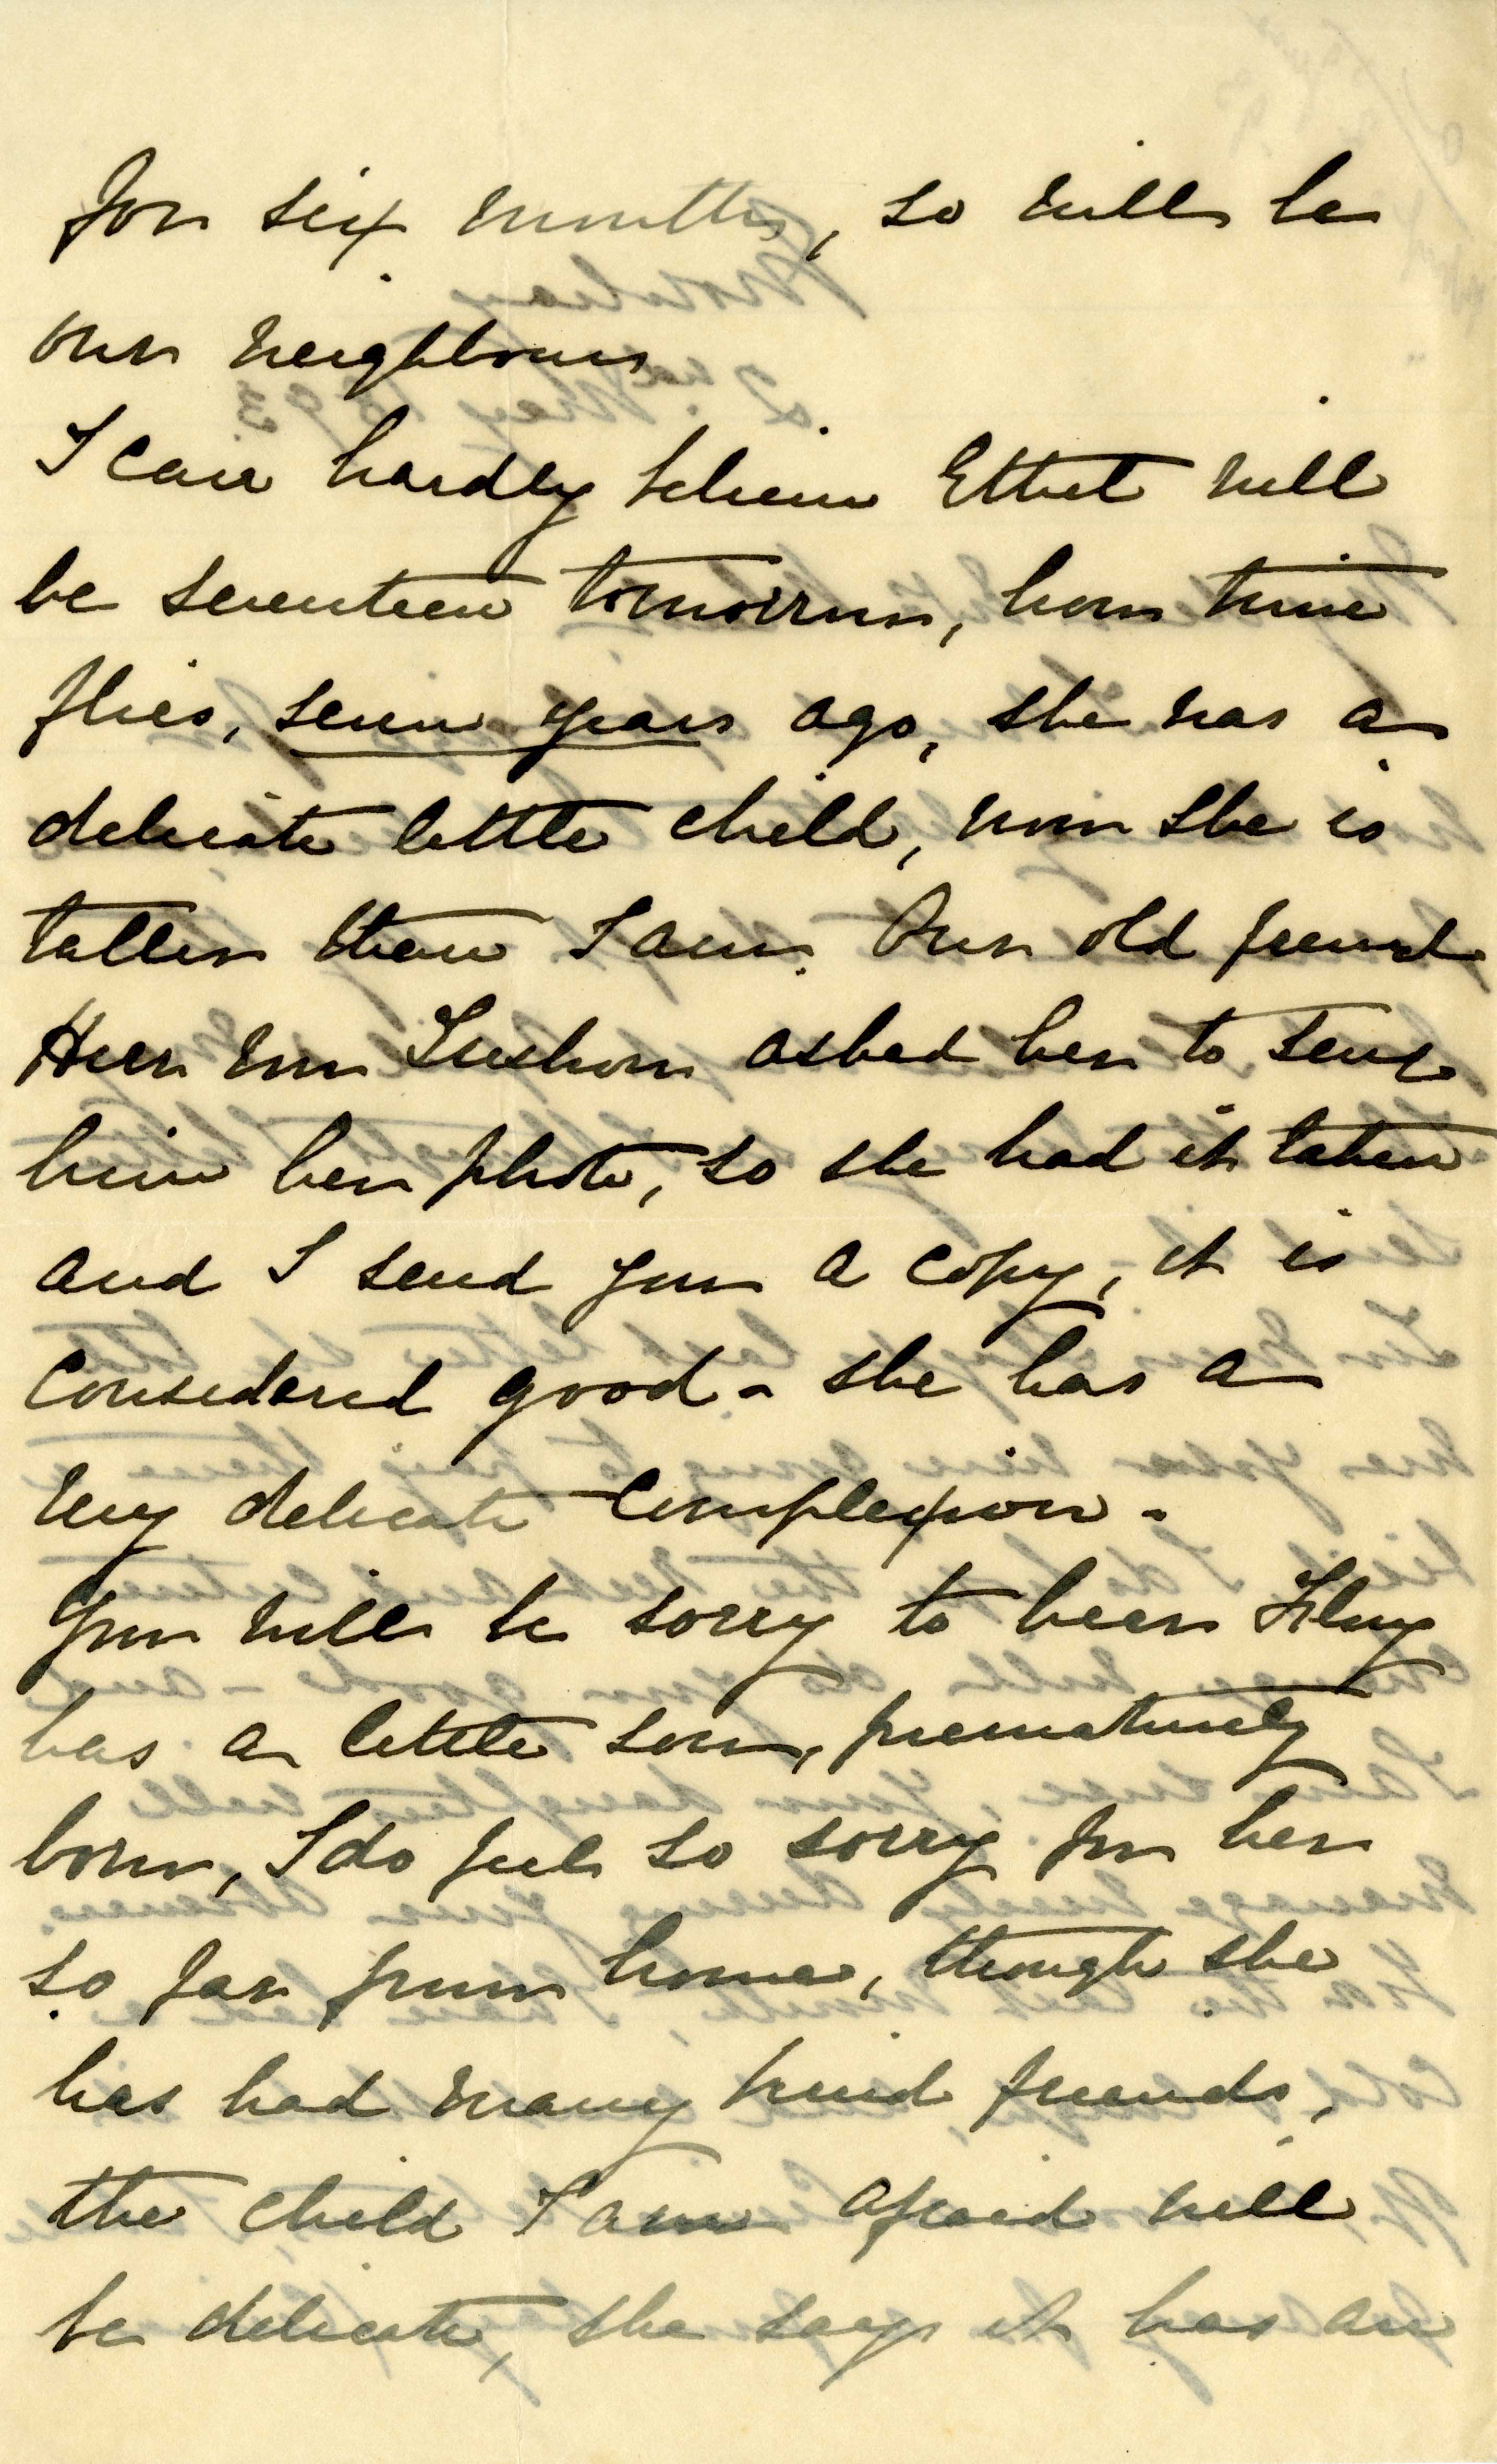 for six months, so will be
our neighbours
I can hardly believe Ethel will
be seventeen tomorrow, how time
flies, seven years ago, she was a
delicate little child, now she is
taller than I am. Our old friend
Herr von asked her to send
him her photo, so she had it taken
and I send you a copy, it is
considered good - she has a
very delicate complexion -
You will be sorry to hear
has a little son, prematurely
born, I do feel so sorry for her
so far from home, though she
has had many kind friends,
the child I am afraid will
be delicate, she says it has an